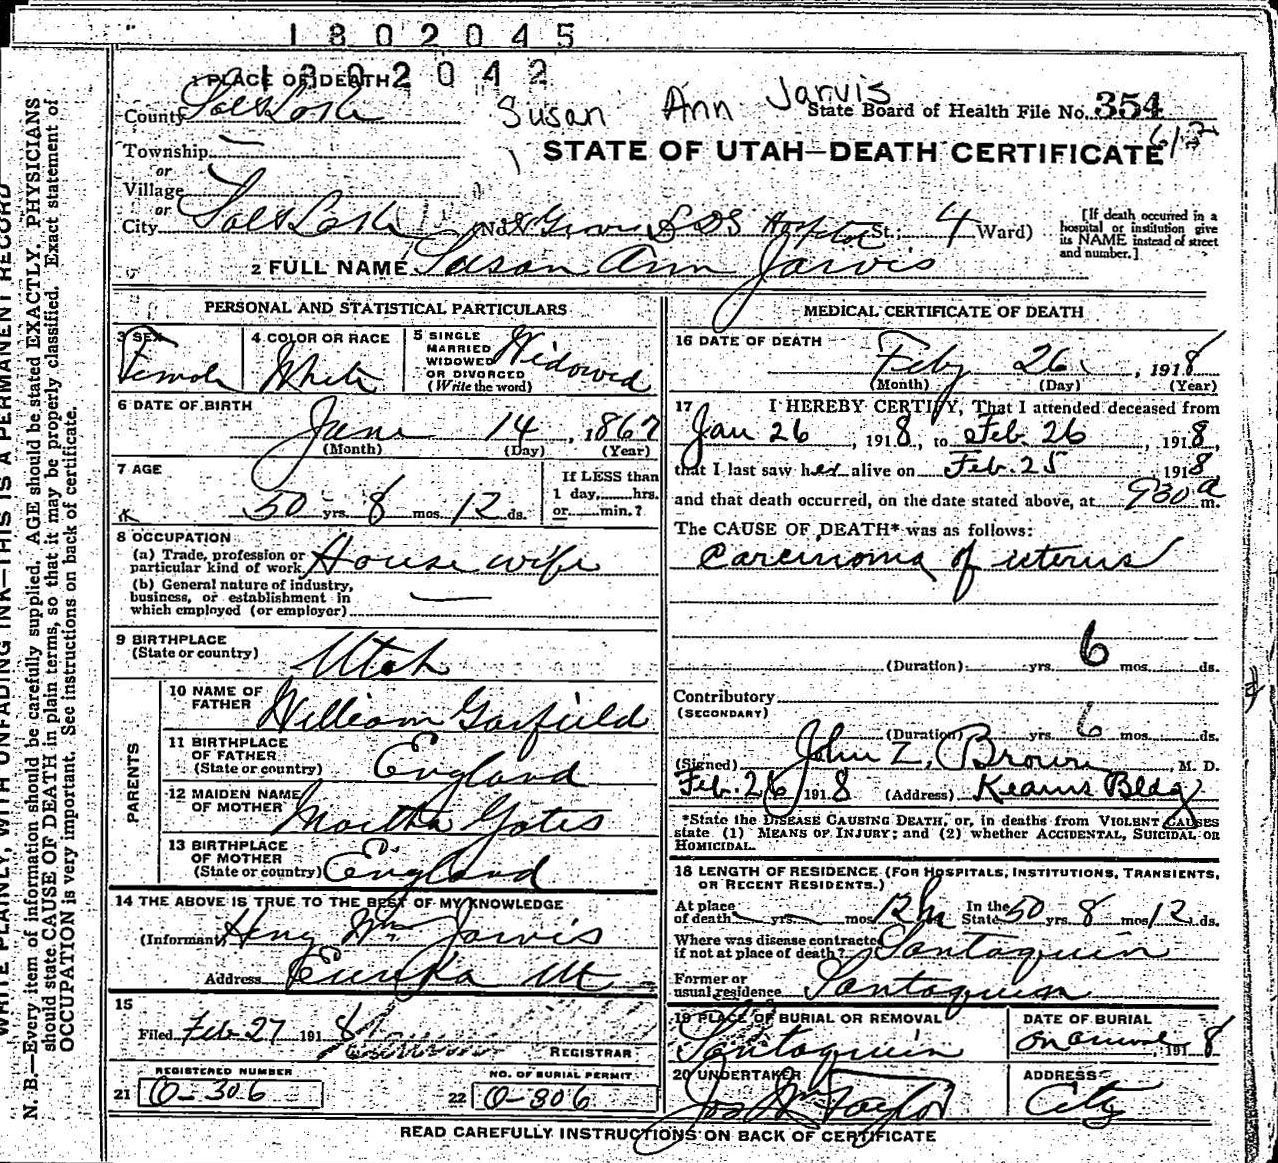 1802045
1 PLACE OF DEATH 1802042
County Salt Lake Susan Ann Jarvis State Board of Health File No. 354
Township —
STATE OF UTAH—DEATH CERTIFICATE
or
Village
or
City Salt Lake (No. 8 Groves L D S Hospital St.; 4 Ward)
[If death occurred in a hospital or institution give its NAME instead of street and number.]
2 FULL NAME Susan Ann Jarvis
PERSONAL AND STATISTICAL PARTICULARS
3 SEX Female
4 COLOR OR RACE White
5 SINGLE MARRIED WIDOWED OR DIVORCED (Write the word) Widowed
6 DATE OF BIRTH
June 14, 1867
(Month) (Day) (Year)
7 AGE
50 yrs. 8 mos. 12 ds.
If LESS than
1 day,......hrs.
or......min.?
8 OCCUPATION
(a) Trade, profession or
particular kind of work House wife
(b) General nature of industry,
business, or establishment in
which employed (or employer) —
9 BIRTHPLACE
(State or country) Utah
PARENTS
10 NAME OF
FATHER William Garfield
11 BIRTHPLACE
OF FATHER
(State or country) England
12 MAIDEN NAME
OF MOTHER Martha Yates
13 BIRTHPLACE
OF MOTHER
(State or country) England
14 THE ABOVE IS TRUE TO THE BEST OF MY KNOWLEDGE
(Informant) Heny Wm Jarvis
Address Eureka Ut
15
Filed Feb 27 1918
REGISTRAR
REGISTERED NUMBER
21 O-306
NO. OF BURIAL PERMIT
22 O-306
MEDICAL CERTIFICATE OF DEATH
16 DATE OF DEATH
Feby 26, 1918
(Month) (Day) (Year)
17 I HEREBY CERTIFY, That I attended deceased from
Jan 26, 1918, to Feb. 26, 1918,
that I last saw her alive on Feb. 25 1918
and that death occurred, on the date stated above, at 930 a m.
The CAUSE OF DEATH* was as follows:
Carcinoma of uterus
(Duration) yrs. 6 mos. ds.
Contributory
(SECONDARY)
(Duration) yrs. 6 mos. ds.
(Signed) John Z. Brown, M. D.
Feb. 26 1918 (Address) Kearns Bldg
*State the DISEASE CAUSING DEATH, or, in deaths from VIOLENT CAUSES
state (1) MEANS OF INJURY; and (2) whether ACCIDENTAL, SUICIDAL OR
HOMICIDAL.
18 LENGTH OF RESIDENCE (FOR HOSPITALS, INSTITUTIONS, TRANSIENTS,
OR RECENT RESIDENTS.)
At place
of death — yrs. — mos. 12 In the State 50 yrs. 8 mos. 12 ds.
Where was disease contracted
if not at place of death? Santaquin
Former or
usual residence Santaquin
19 PLACE OF BURIAL OR REMOVAL
Santaquin
DATE OF BURIAL
1918
20 UNDERTAKER
Jos Wm Taylor
ADDRESS
City
READ CAREFULLY INSTRUCTIONS ON BACK OF CERTIFICATE
WRITE PLAINLY, WITH UNFADING INK—THIS IS A PERMANENT RECORD
N. B.—Every item of information should be carefully supplied. AGE should be stated EXACTLY. PHYSICIANS
should state CAUSE OF DEATH in plain terms, so that it may be properly classified. Exact statement of
OCCUPATION is very important. See instructions on back of certificate.